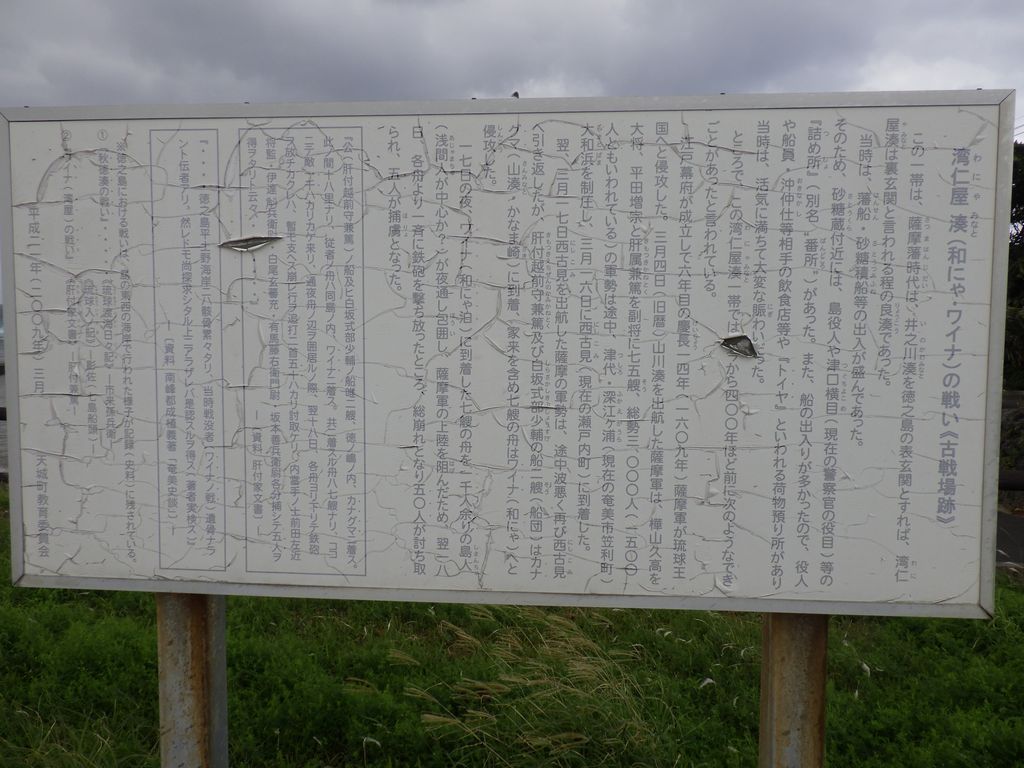 湾仁屋 湊(和にや・ワイナ)の戦い《古戦場跡》
この一帯は、薩摩藩時代は、井之川湊を徳之島の表玄関とすれば、湾仁
屋湊は裏玄関と言われる程の良湊であった。
当時は、藩船・砂糖積船等の出入が盛んであった。
そのため、砂糖蔵付近には、島役人や津口横目(現在の警察官の役目)等の
『詰め所』(別名"番所")があった。また、船の出入りが多かったので、役人
や船員・沖仲仕等相手の飲食店等や『トイヤ』といわれる荷物預り所があり
当時は、活気に満ちて大変な賑わいた。
ところで、この湾仁屋湊一帯では、から四〇〇年ほど前に次のようなでき
ごとがあったと言われている。
江戸幕府が成立して六年目の慶長一四年(一六〇九年)薩摩軍が琉球王
国へと侵攻した。三月四日(旧暦)山川湊を出航した薩摩軍は、樺山久高を
大将、平田増宗と肝属兼篤を副将に七五艘、総勢三、〇〇〇人(一五〇〇
人ともいわれている)の軍勢は途中、津代・深江ヶ浦(現在の奄美市笠利町)
大和浜を制圧し、三月一六日に西古見(現在の瀬戸内町)に到着した。
翌、三月一七日西古見を出航した薩摩の軍勢は、途中波悪く再び西古見
へ引き返したが、肝付越前守兼篤及び白坂式部少輔の船二艘(船団)はカナ
グマ(山湊・かなま崎)に到着、家来を含め七艘の舟はワイナ(和にゃ)へと
侵攻した。
一七日の夜、ワイナ(和にゃ泊)に到着した七艘の舟を一千人余りの島人
(浅間人が中心か?)が夜通し包囲し、薩摩軍の上陸を阻んだため、翌一八
日、各舟より一斉に鉄砲を撃ち放ったところ、総崩れとなり五〇人が討ち取
られ、五人が捕虜となった。
『公(肝付越前守兼篤)ノ船及ヒ白坂式部少輔ノ船唯二艘、徳ノ嶋ノ内、カナグマニ着ス。
此ノ間十八里ナリ、従者ノ舟八同島ノ内、ワイナニ着ス。共ニ着スル舟八七艘ナリ、
三テ敵一千人ハカリカケ来リ、通夜舟ノ辺ヲ囲居ルノ際、翌十八日、各舟ヨリ下リテ鉄砲
ヲ放チカクレハ、暫モタヘス崩レ行ヲ追打ニ首五十ハカリ討取ケリ、内當手ノ士前田左近
将監・伊達舩兵衛尉・白尾玄審允・有馬藤右衛門尉・坂本善兵衛尉各分捕シテ五人ヲ
得ヲタリト云々』 ―〔資料 肝付家文書〕―
『・・・徳之島平土野海岸ニハ骸骨累々タリ、(当時戦没者(ワイナノ戦)遺骨ナラ
ント伝者アリ、然シトモ尚探求シタル上ニアラザレバ是認スルヲ得ス(著者実検ズ)』
―〔資料 南島都成植義著〈奄美史談〉〕―
※徳之島における戦いは、島の東西の海岸で行われた様子が記録(史料)に残されている。
①〈秋徳湊の戦い〉・・・『琉球渡海日々記』 ―市来孫兵―
『琉球入ノ記』 ―影佐(七島船頭)―
②〈ワイナ(湾屋)の戦い〉・・・『肝付家文書』 ―肝付兼篤―
平成二一年(二〇〇九年)三月　天城町教育委員会